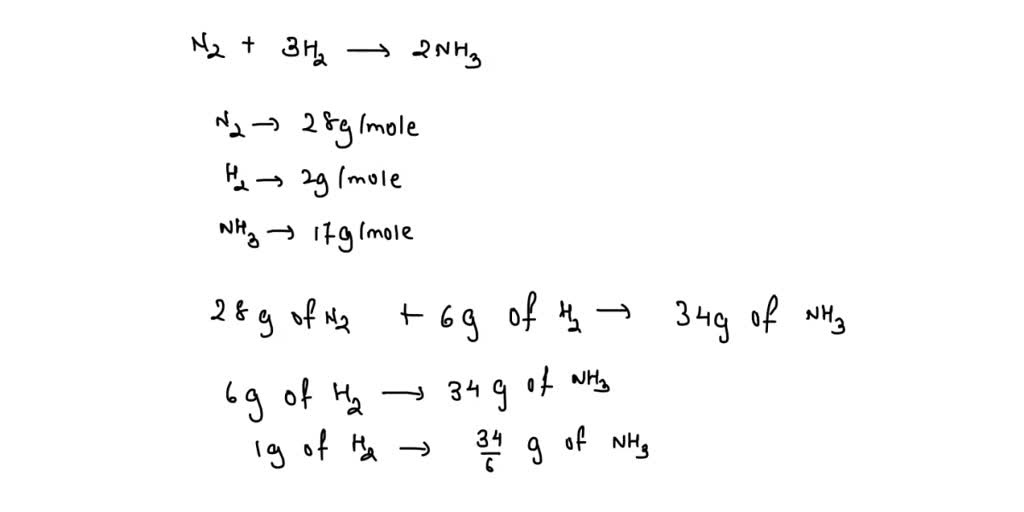 N₂ + 3H₂ → 2NH₃
N₂ → 28g/mole
H₂ → 2g/mole
NH₃ → 17g/mole
28g of N₂ + 6g of H₂ → 34g of NH₃
6g of H₂ → 34g of NH₃
1g of H₂ → 34/6 g of NH₃